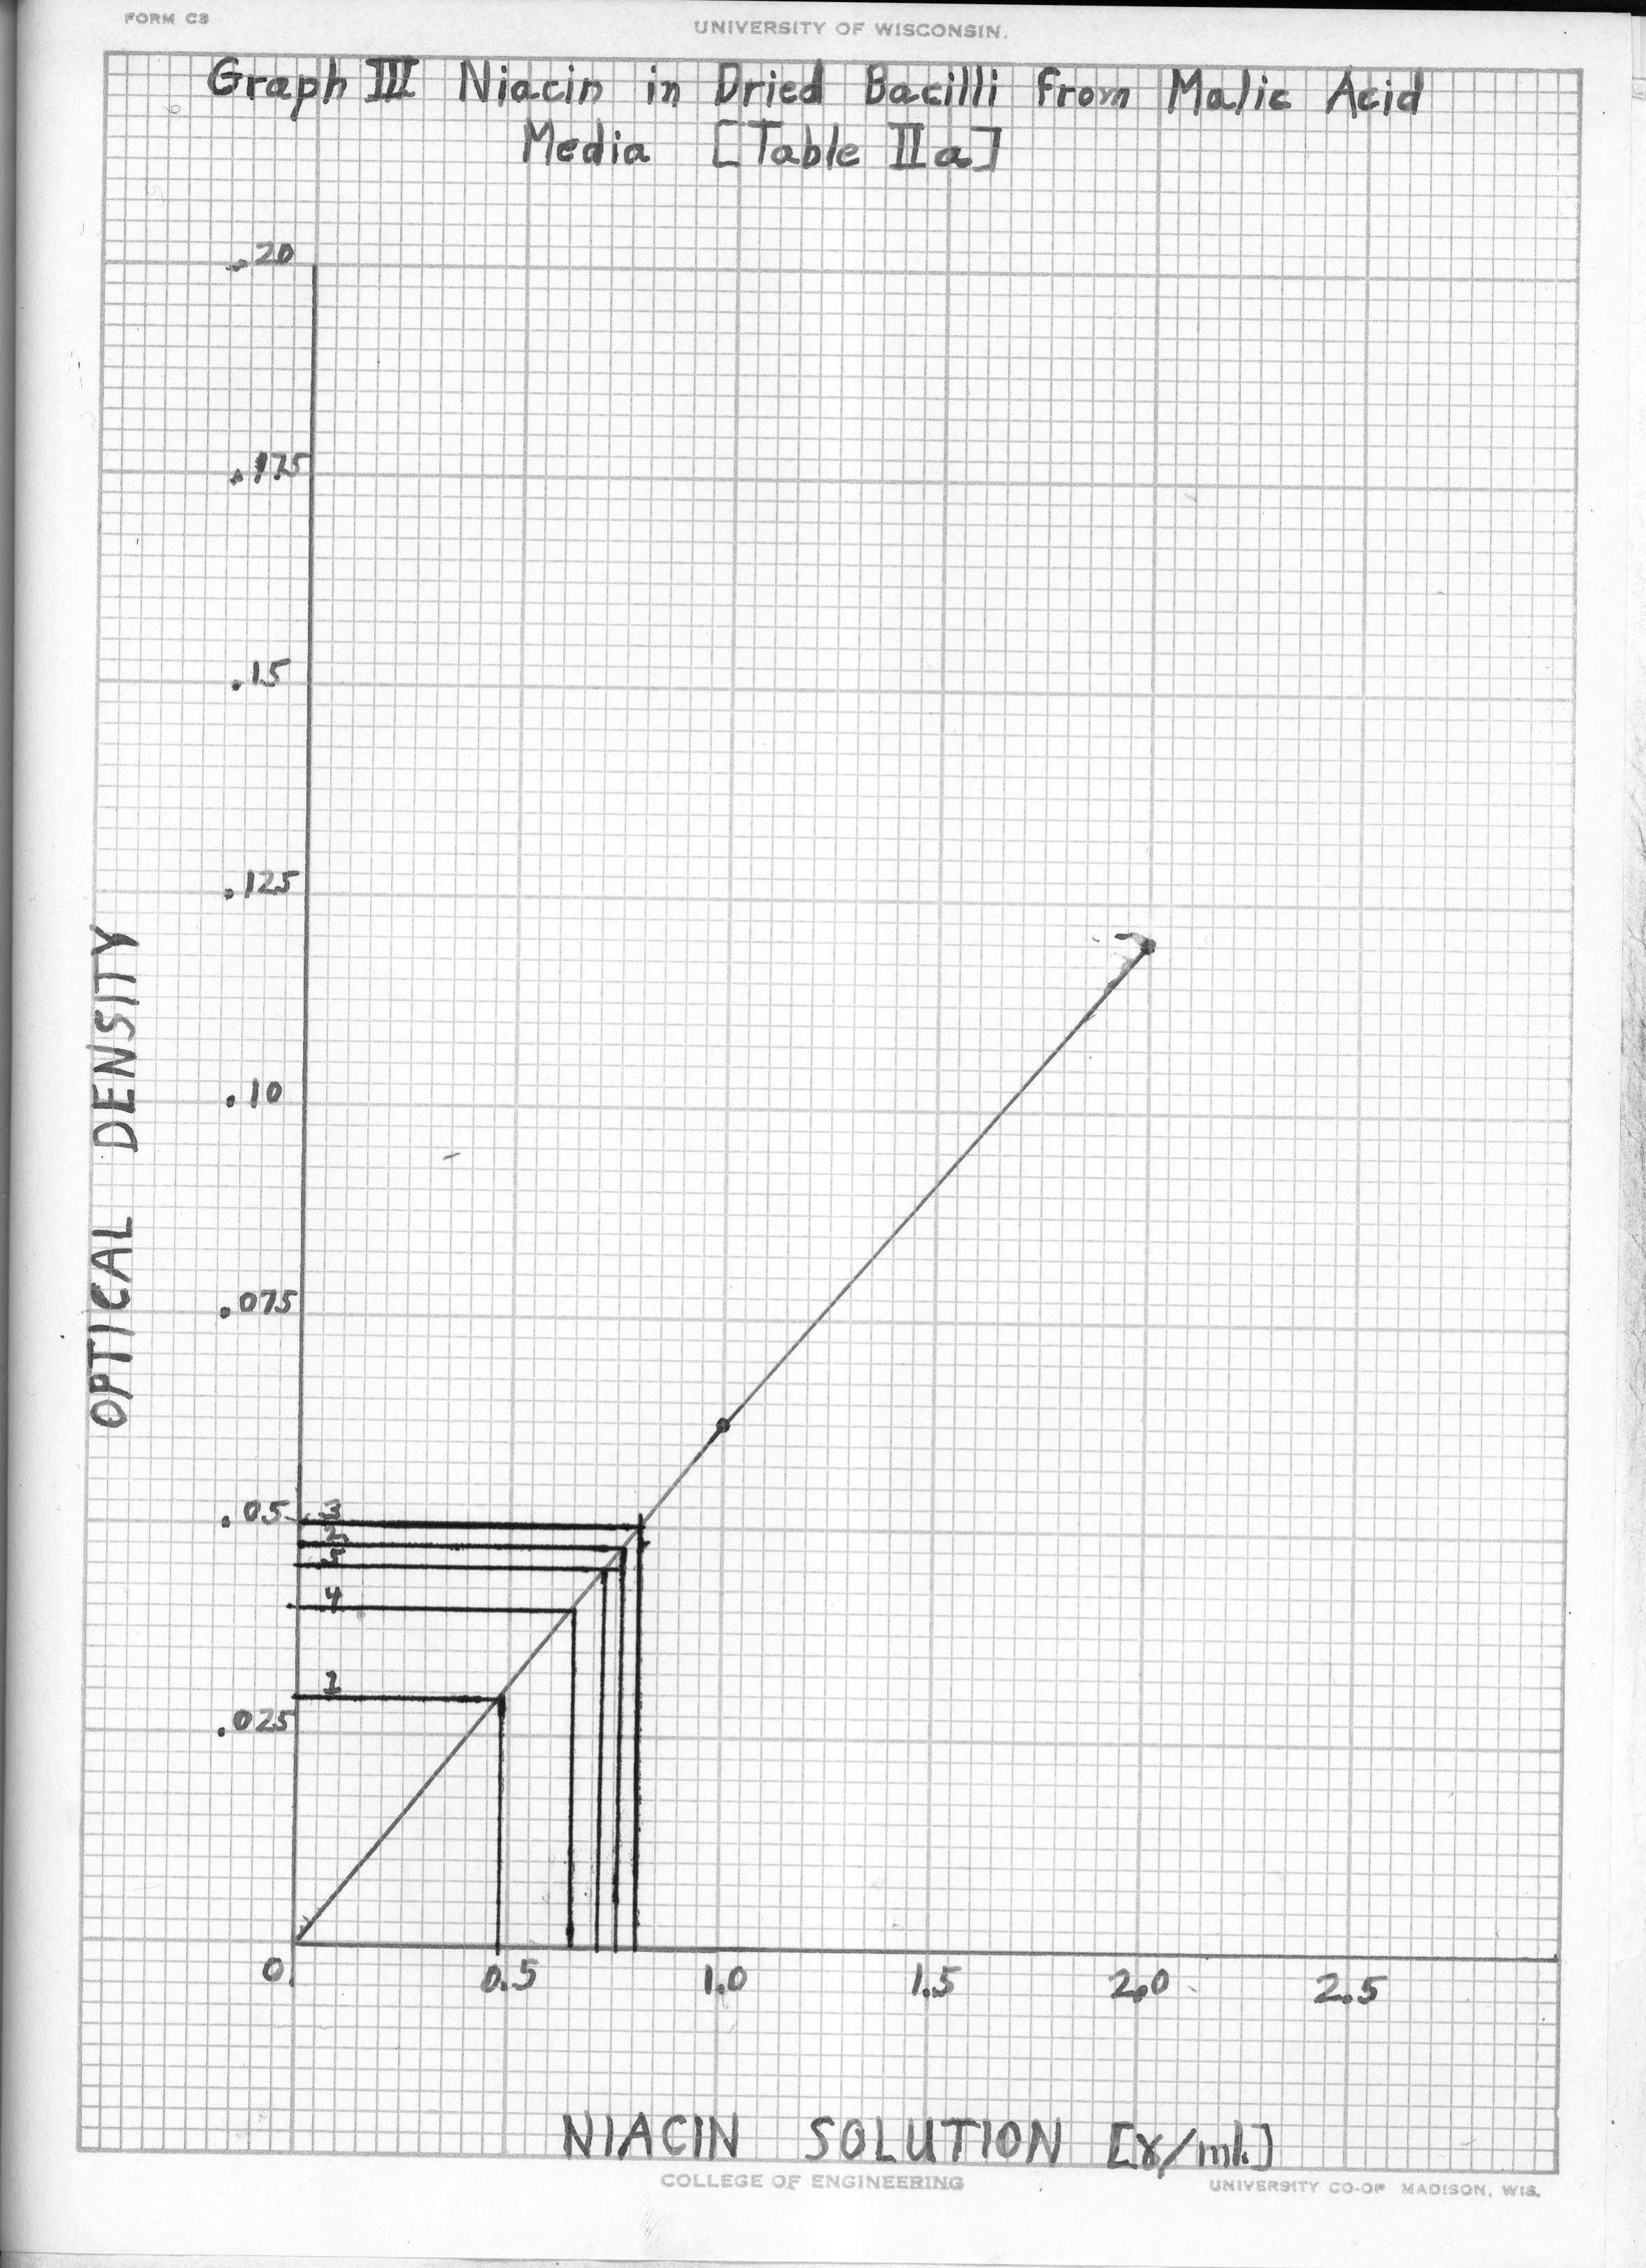 FORM C3
UNIVERSITY OF WISCONSIN.
Graph III Niacin in Dried Bacilli from Malic Acid
Media [Table IIa]
.20
.175
.15
.125
.10
.075
.05
3
2
5
4
1
.025
OPTICAL DENSITY
0 0.5 1.0 1.5 2.0 2.5
NIACIN SOLUTION [γ/ml.]
COLLEGE OF ENGINEERING
UNIVERSITY CO-OP MADISON, WIS.